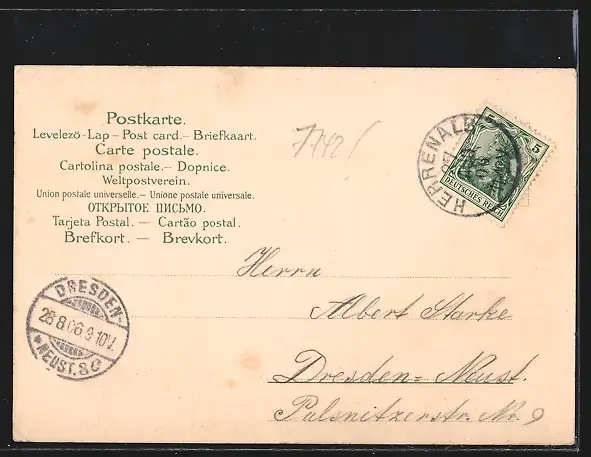 Postkarte.
Levelezö-Lap – Post card. – Briefkaart.
Carte postale.
Cartolina postale. – Dopnice.
Weltpostverein.
Union postale universelle. – Unione postale universale.
ОТКРЫТОЕ ПИСЬМО.
Tarjeta Postal. — Cartão postal.
Brefkort. — Brevkort.
HERRENALB
5 5
DEUTSCHES REICH
Herrn
Albert Starke
Dresden=Neust.
Pulsnitzerstr. Nr. 9
DRESDEN-
28.8.06.9-10V.
NEUST. 8